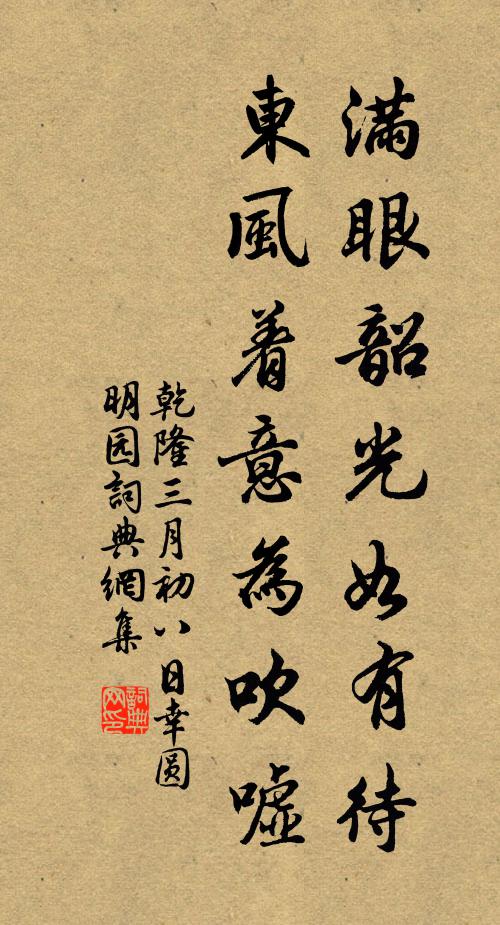 滿眼韶光如有待
東風着意為吹噓
乾隆三月初八日幸圓
明园詞典網集
詞典网印